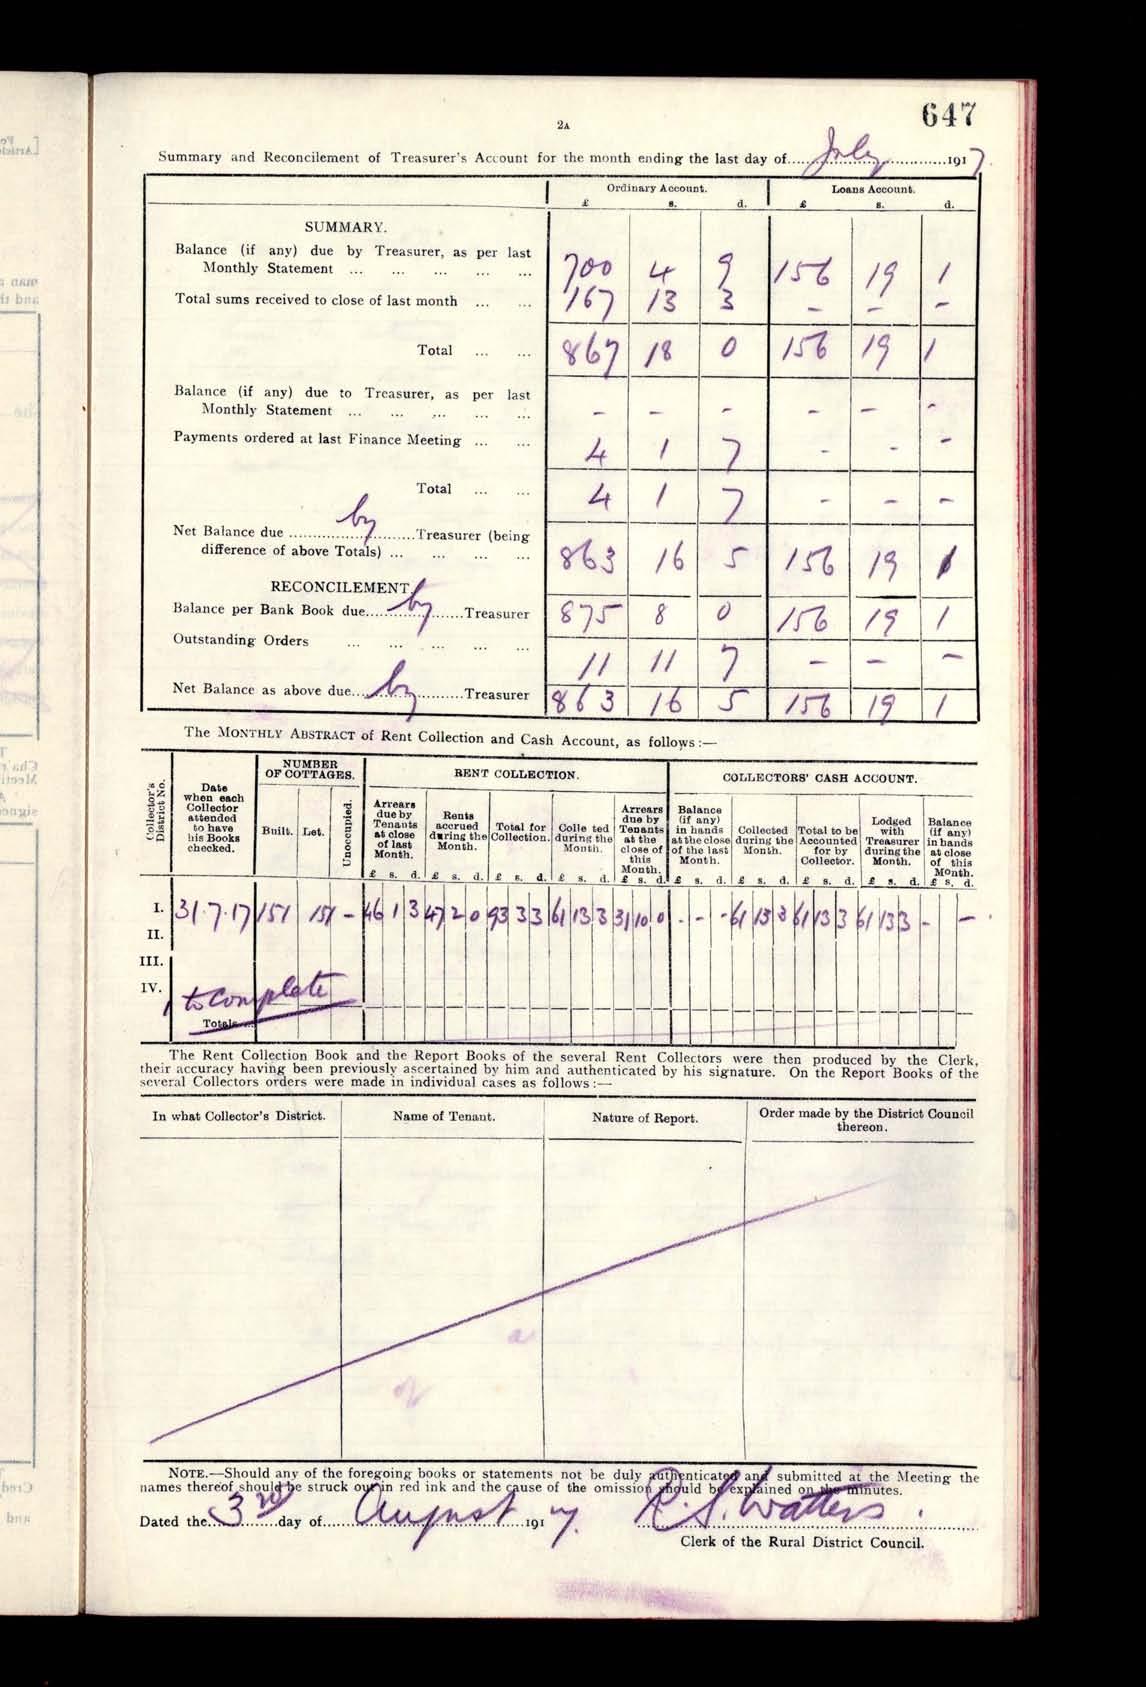 647
2A
Summary and Reconcilement of Treasurer's Account for the month ending the last day of July 1917
Ordinary Account. Loans Account.
£ s. d. £ s. d.
SUMMARY.
Balance (if any) due by Treasurer, as per last
Monthly Statement ... ... ... ... ... 700 4 9 156 19 1
Total sums received to close of last month ... ... 167 13 3 - - -
Total ... ... 867 18 0 156 19 1
Balance (if any) due to Treasurer, as per last
Monthly Statement ... ... ... ... ... - - - - - -
Payments ordered at last Finance Meeting ... ... 4 1 7 - - -
Total ... ... 4 1 7 - - -
Net Balance due by Treasurer (being
difference of above Totals) ... ... ... ... 863 16 5 156 19 1
RECONCILEMENT
Balance per Bank Book due by Treasurer 875 8 0 156 19 1
Outstanding Orders ... ... ... ... ... 11 11 7 - - -
Net Balance as above due by Treasurer 863 16 5 156 19 1
The MONTHLY ABSTRACT of Rent Collection and Cash Account, as follows:—
Collector's District No.
Date when each Collector attended to have his Books checked.
NUMBER OF COTTAGES.
Built. Let. Unoccupied.
RENT COLLECTION.
Arrears due by Tenants at close of last Month.
Rents accrued during the Month.
Total for Collection.
Colle ted during the Month.
Arrears due by Tenants at the close of this Month.
COLLECTORS' CASH ACCOUNT.
Balance (if any) in hands at the close of the last Month.
Collected during the Month.
Total to be Accounted for by Collector.
Lodged with Treasurer during the Month.
Balance (if any) in hands at close of this Month.
£ s. d. £ s. d. £ s. d. £ s. d. £ s. d. £ s. d. £ s. d. £ s. d. £ s. d. £ s. d.
I. 31.7.17 151 151 - 46 1 3 47 2 0 93 3 3 61 13 3 31 10 0 - - - 61 13 3 61 13 3 61 13 3 - -
II.
III.
IV.
to complete
Totals ...
The Rent Collection Book and the Report Books of the several Rent Collectors were then produced by the Clerk,
their accuracy having been previously ascertained by him and authenticated by his signature. On the Report Books of the
several Collectors orders were made in individual cases as follows:—
In what Collector's District. Name of Tenant. Nature of Report. Order made by the District Council
thereon.
NOTE.—Should any of the foregoing books or statements not be duly authenticated and submitted at the Meeting the
names thereof should be struck out in red ink and the cause of the omission should be explained on the minutes.
Dated the 3rd day of August 1917. R. S. Watters.
Clerk of the Rural District Council.